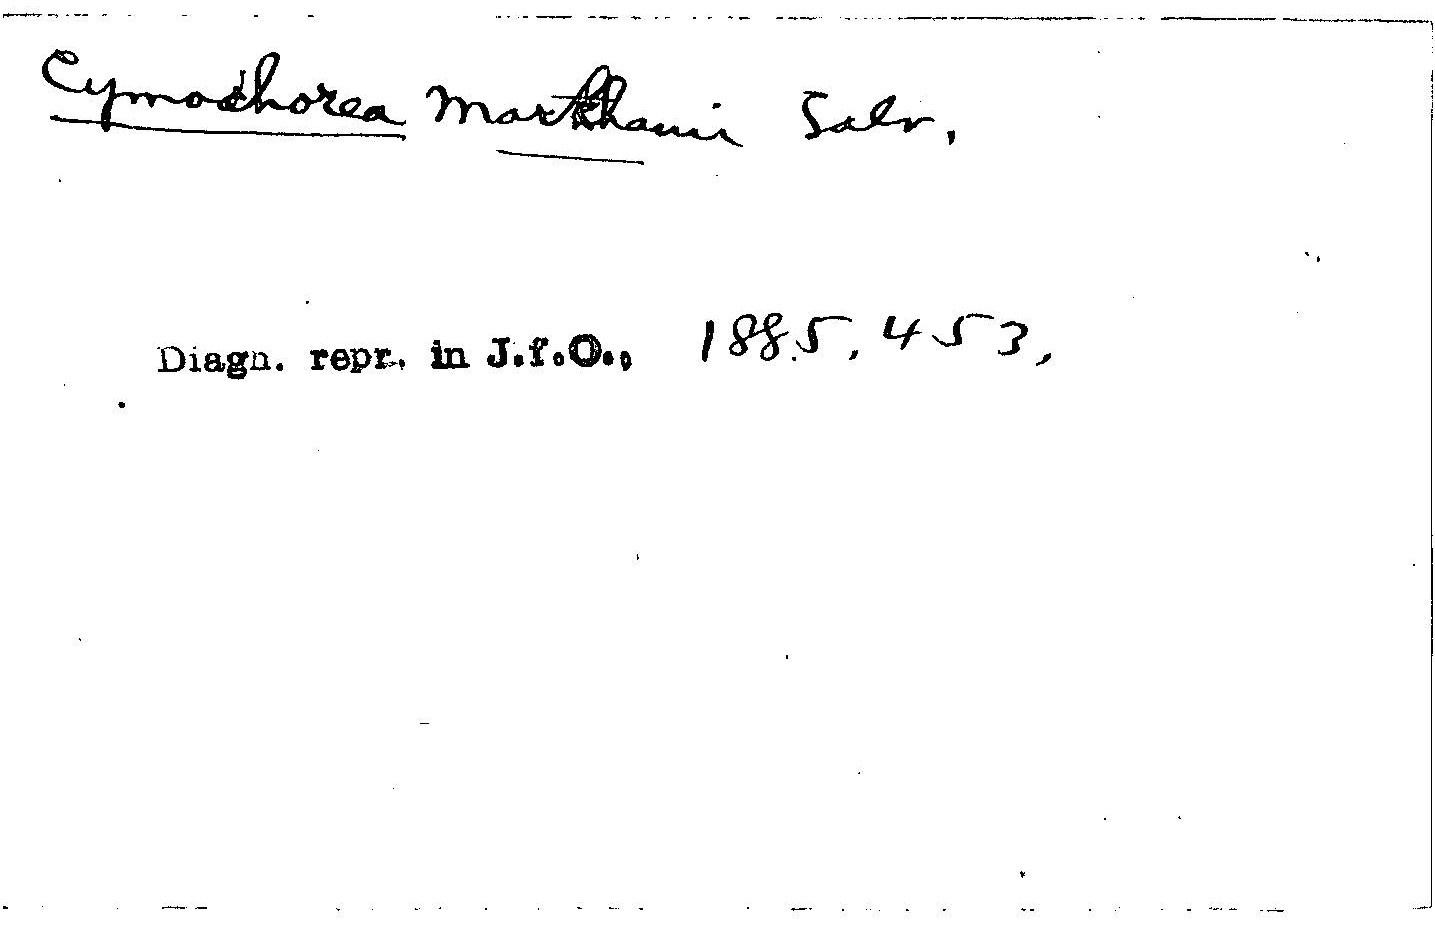 Cymochorea Markhami Salv.
Diagn. repr. in J.f.O., 1885, 453,